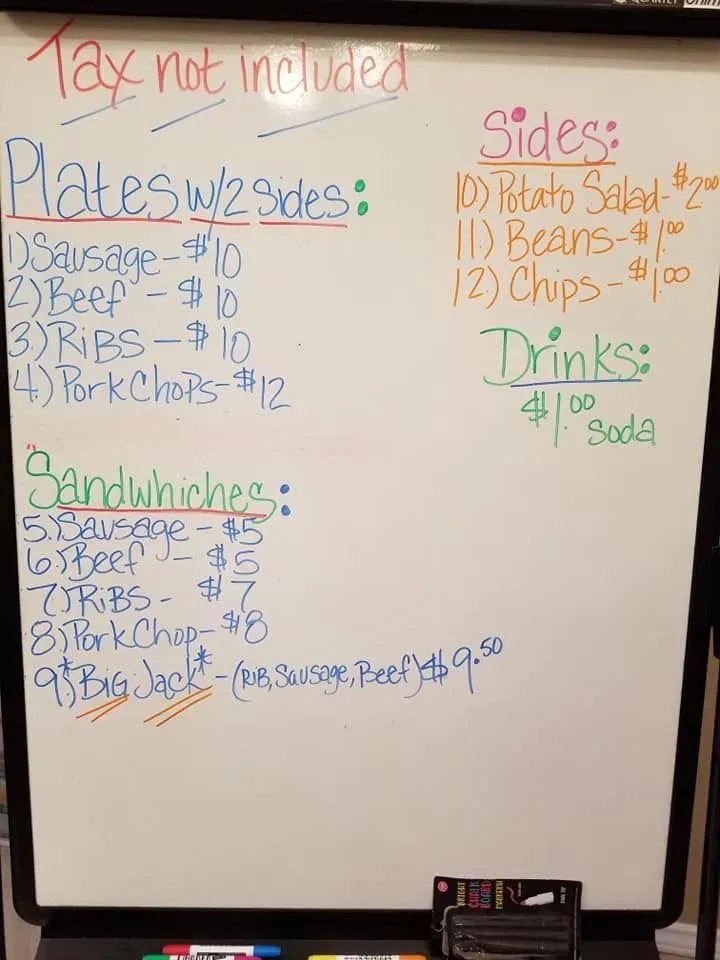 Tax not included
Plates w/2 sides:
1) Sausage - $10
2) Beef - $10
3.) RiBS - $10
4.) Pork ChoPs - $12
Sandwhiches:
5.) Sausage - $5
6.) Beef - $5
7.) RiBS - $7
8.) Pork Chop - $8
9.) *BiG Jack* - (RiB, Sausage, Beef) $9.50
Sides:
10.) Potato Salad - $2.00
11.) Beans - $1.00
12.) Chips - $1.00
Drinks:
$1.00 soda
BRIGHT
CHALK
BOARD
MARKERS!